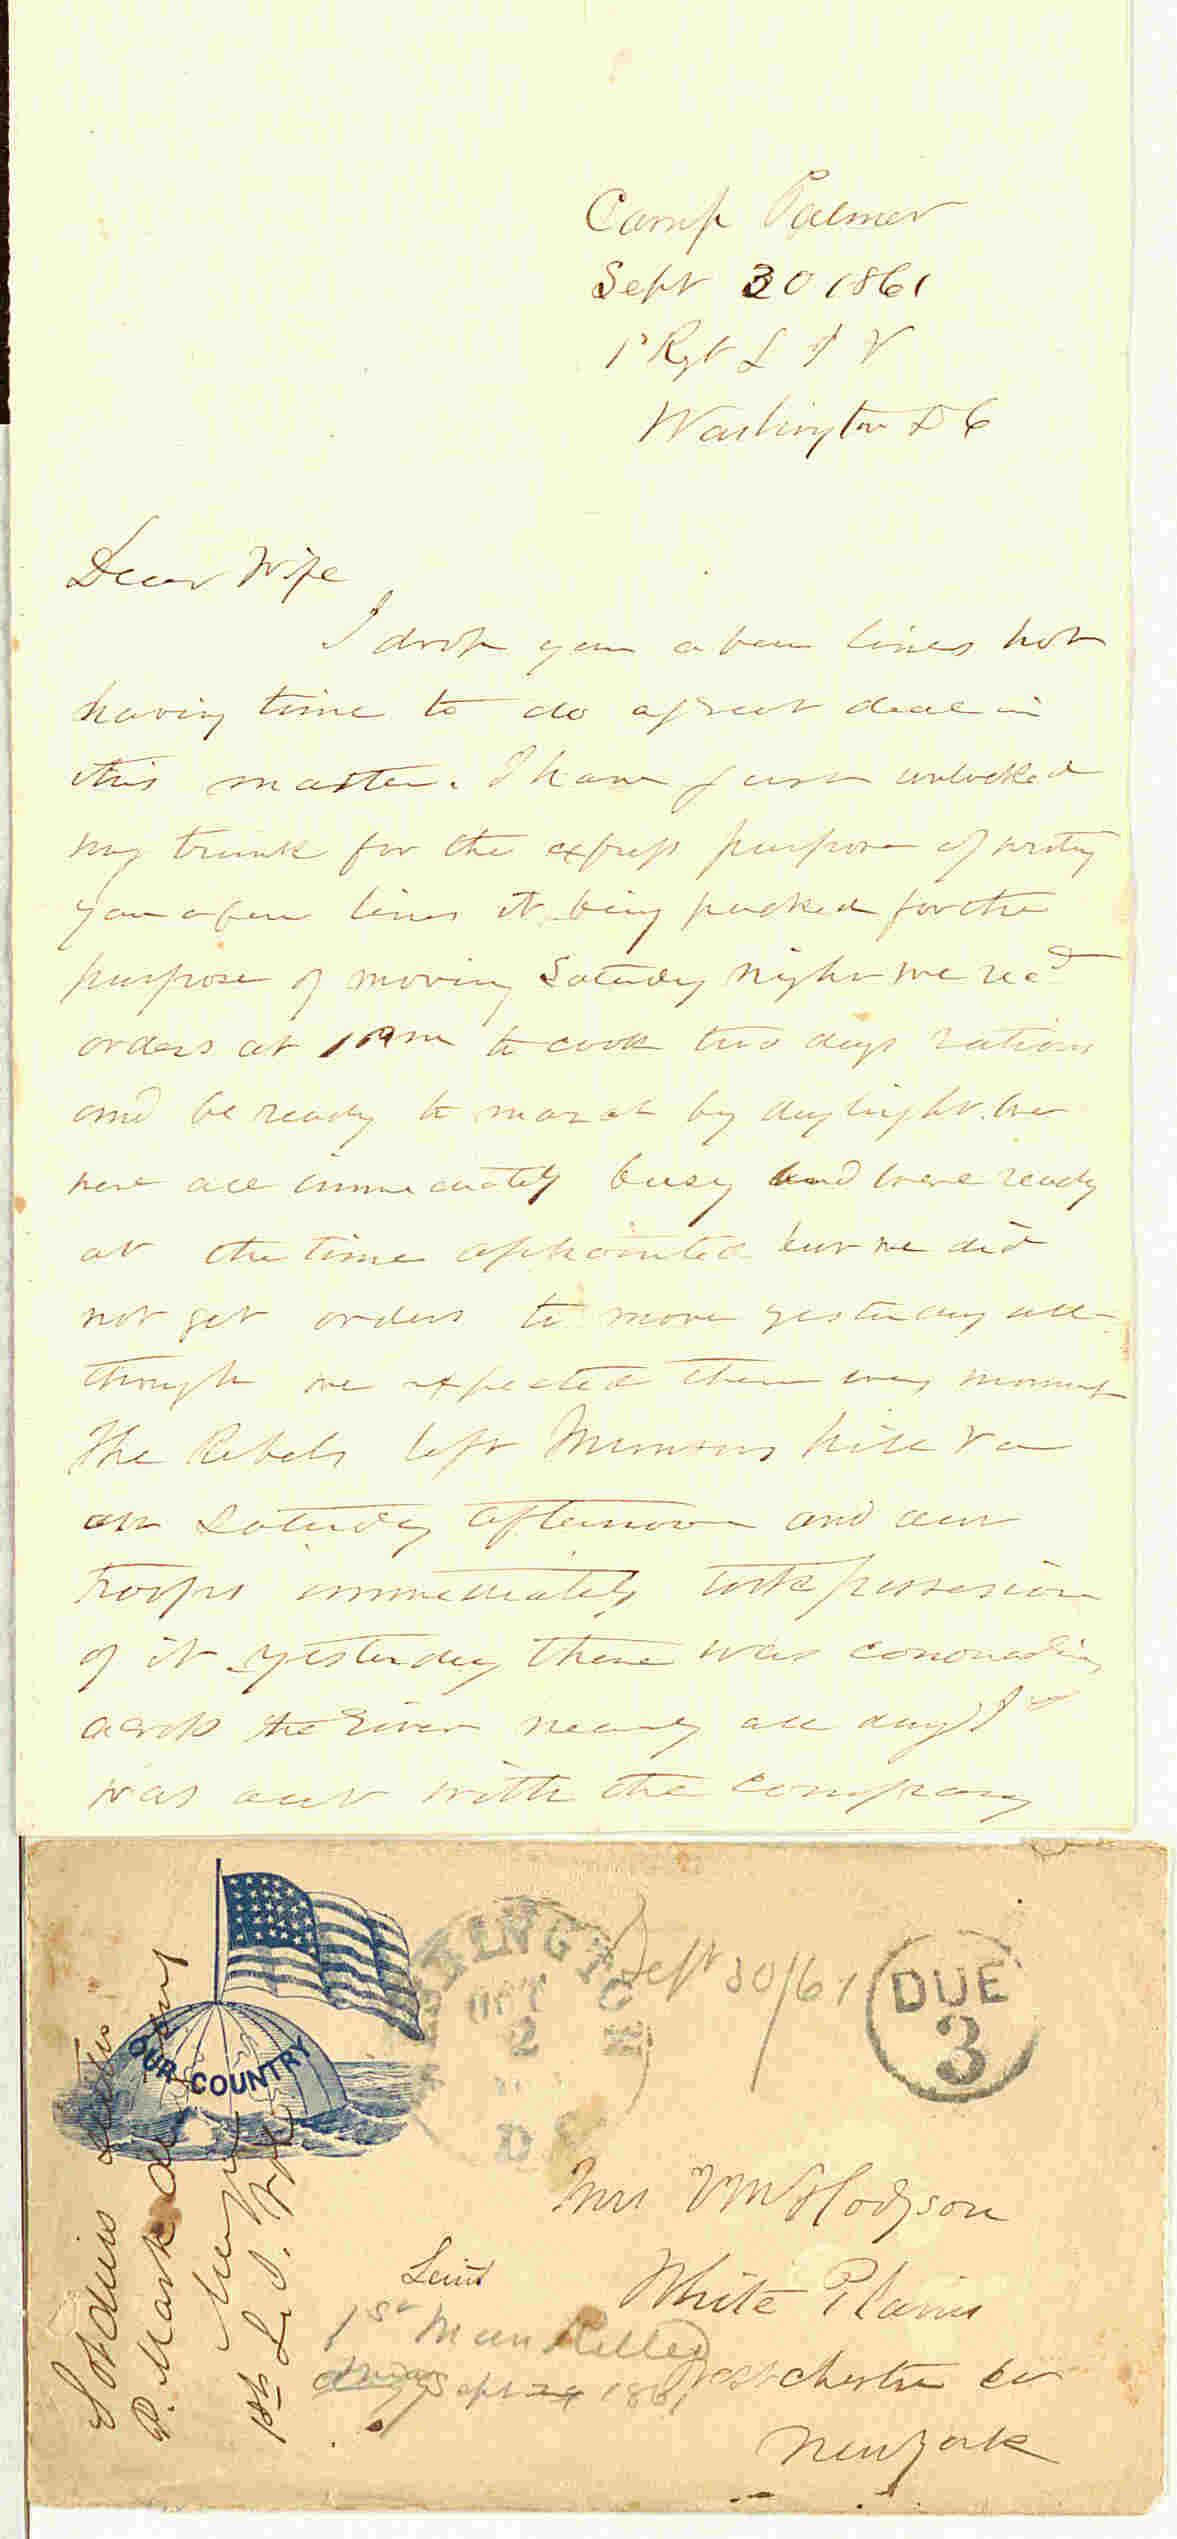 Camp Palmer
Sept 30 1861
1st Rgt L I V
Washington D C
Dear Wife
I drop you a few lines not
having time to do a great deal in
this matter. I have just unlocked
my trunk for the express purpose of writing
you a few lines it being packed for the
purpose of moving Saturday night we recd
orders at to cook two days rations
and be ready to march by daylight. we
were all immediately busy and were ready
at the time appointed but we did
not get orders to move yesterday all-
though we expected them every moment
The Rebels left Munsons hill Va
on Saturday afternoon and our
troops immediately took possesion
of it yesterday there was cononading
across the river nearly all day I
was out with the company
OUR COUNTRY
WASHINGTON
OCT
2
D C
Sept 30/61
DUE
3
Mrs V M Hodgson
White Plains
Westchester Co
New York
Soldiers letter
P. Mark
1st L. I.
Lieut
1st Man Killed
Sept 29 1861